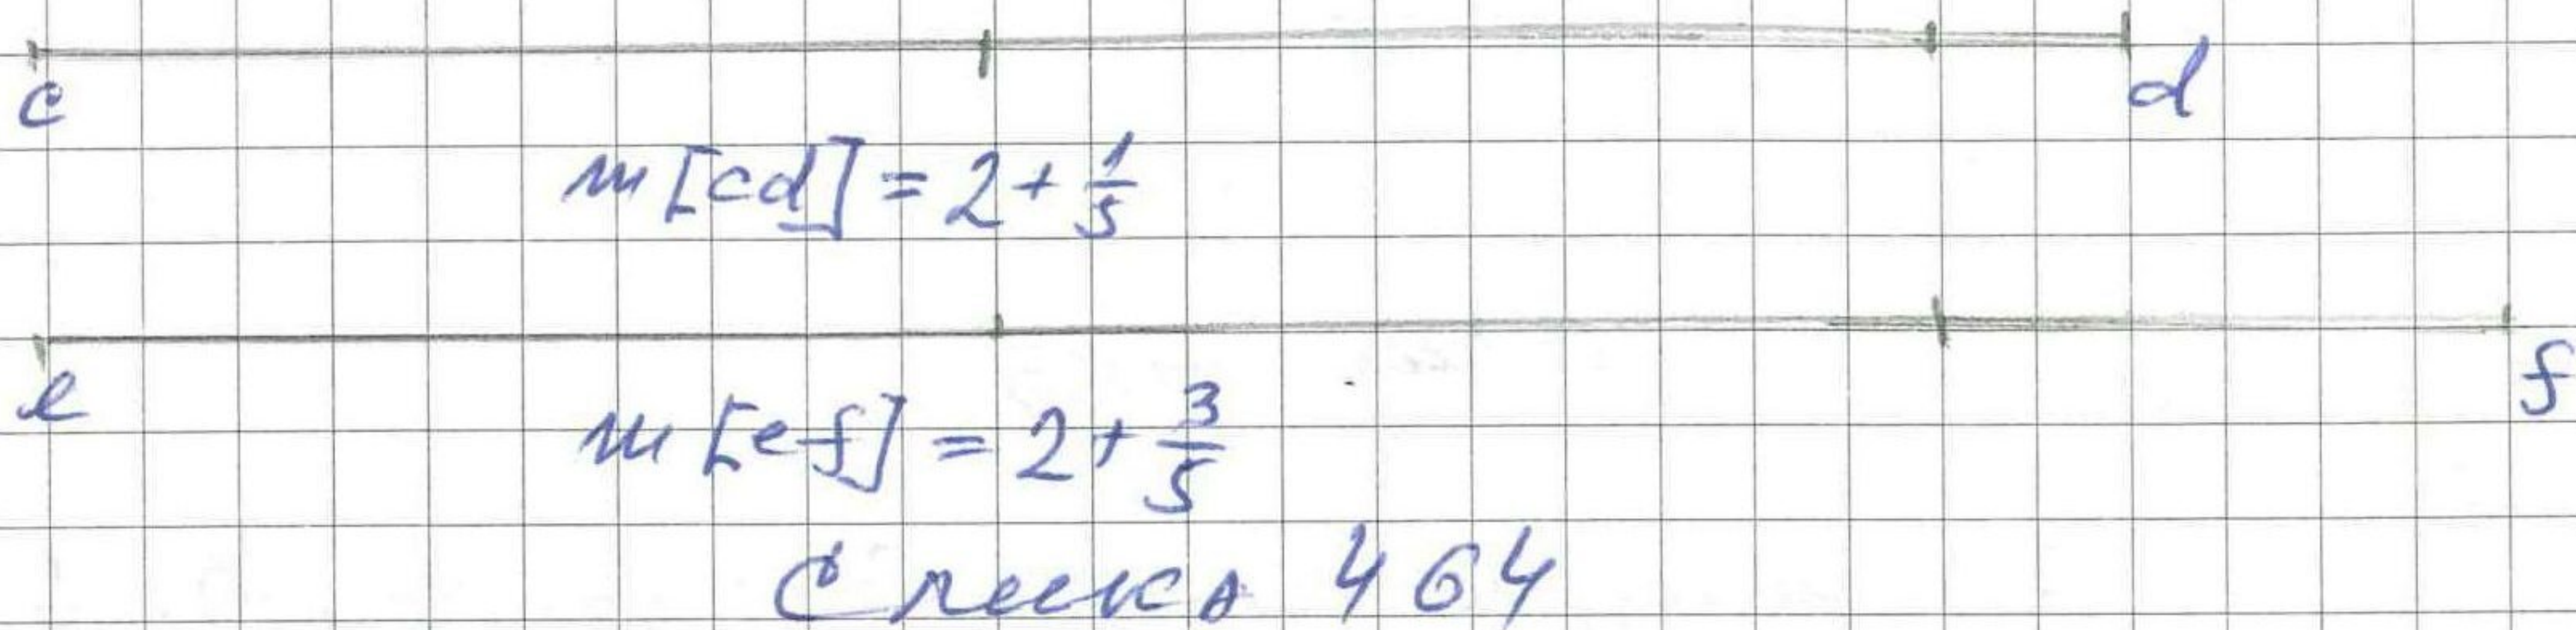 c d
m[cd] = 2 + 1/5
e f
m[ef] = 2 + 3/5
Слика 464